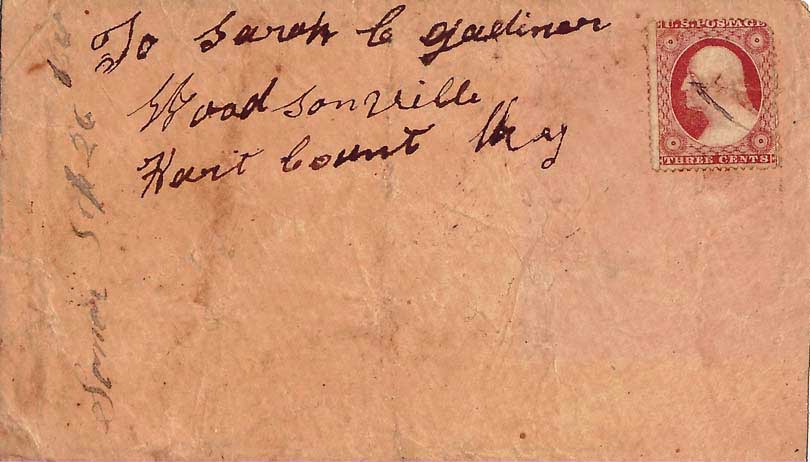 To Sarah C gadiner
Woodsonville
Hart Count Ky
U.S. POSTAGE
THREE CENTS
Sept 26